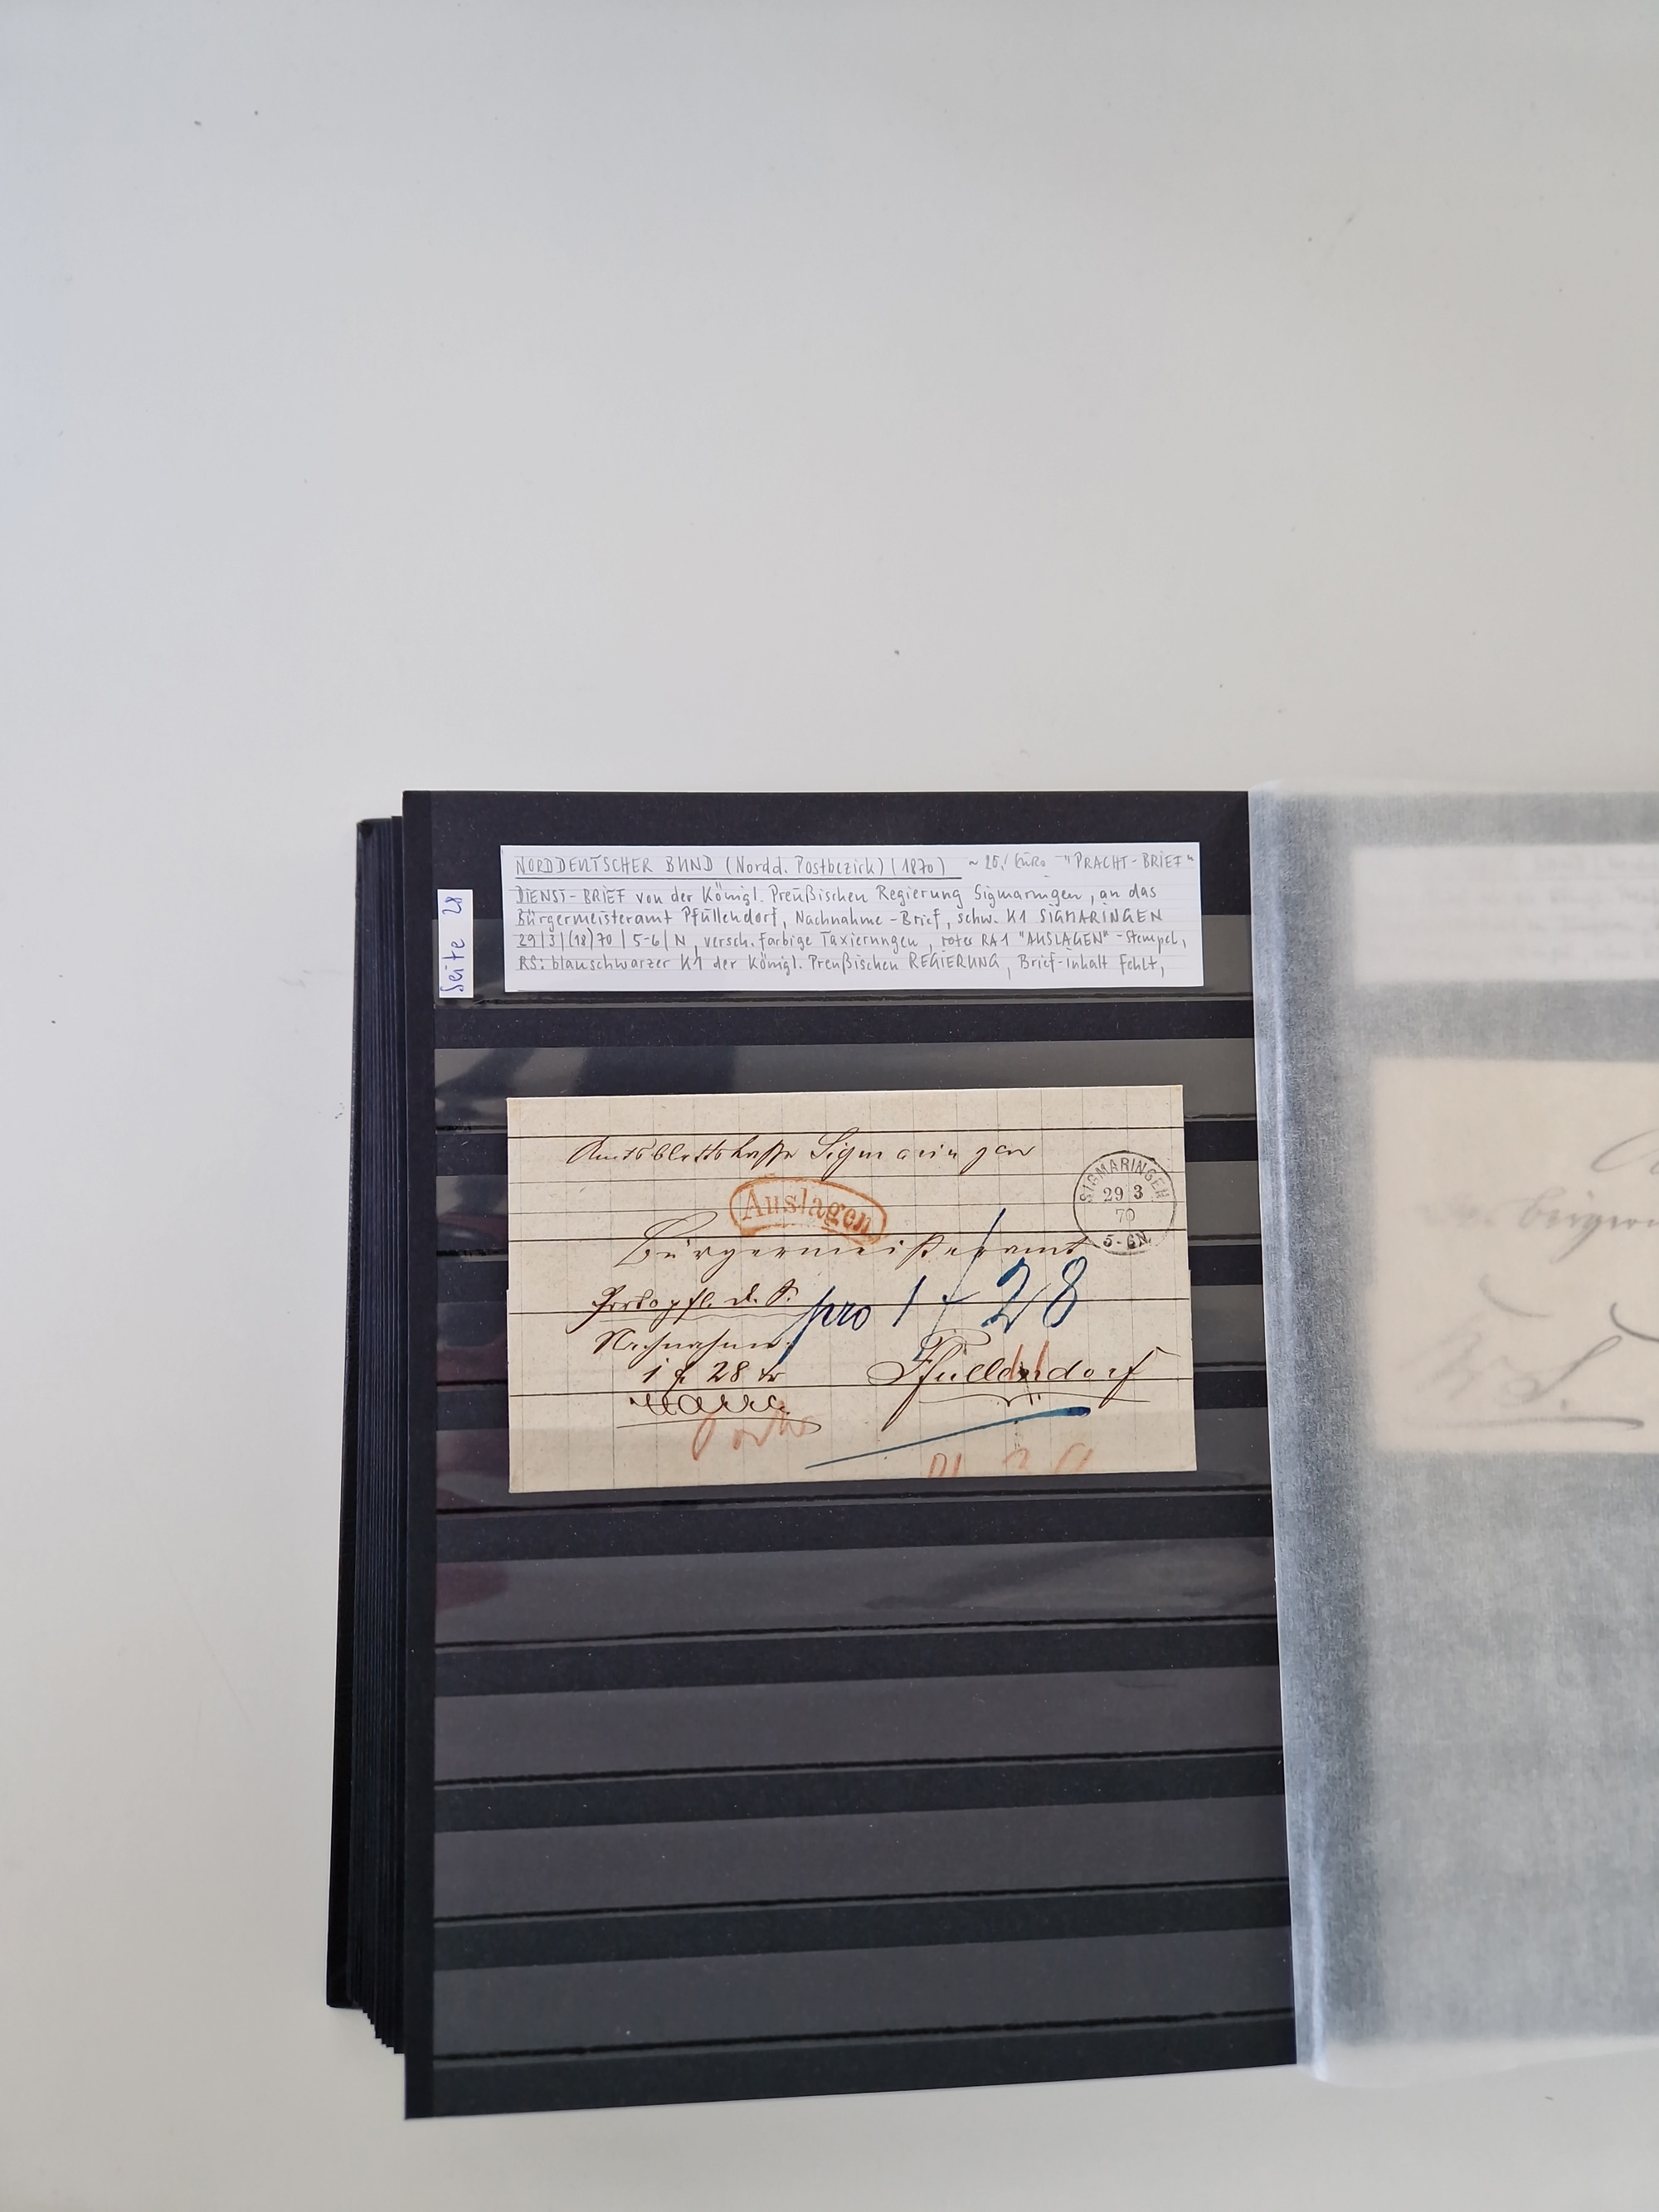 NORDDEUTSCHER BUND (Nordd. Postbezirk) (1870) ~ 20,! Euro - "PRACHT-BRIEF"
DIENST-BRIEF von der Königl. Preußischen Regierung Sigmaringen, an das
Bürgermeisteramt Pfullendorf, Nachnahme-Brief, schw. K1 SIGMARINGEN
29/3/(18)70/5-6/N, versch. farbige Taxierungen, rotes RA1 "AUSLAGEN"-Stempel,
RS: blauschwarzer K1 der Königl. Preußischen REGIERUNG, Brief-Inhalt fehlt,
Seite 28
Amtsblattskasse Sigmaringen
SIGMARINGEN
29 3
70
5-6N.
Auslagen
Bürgermeisteramt
Portopfl. d. S.
pro 1 f 28
Nachnahme
1 f 28 kr
Pfullendorf
Porto